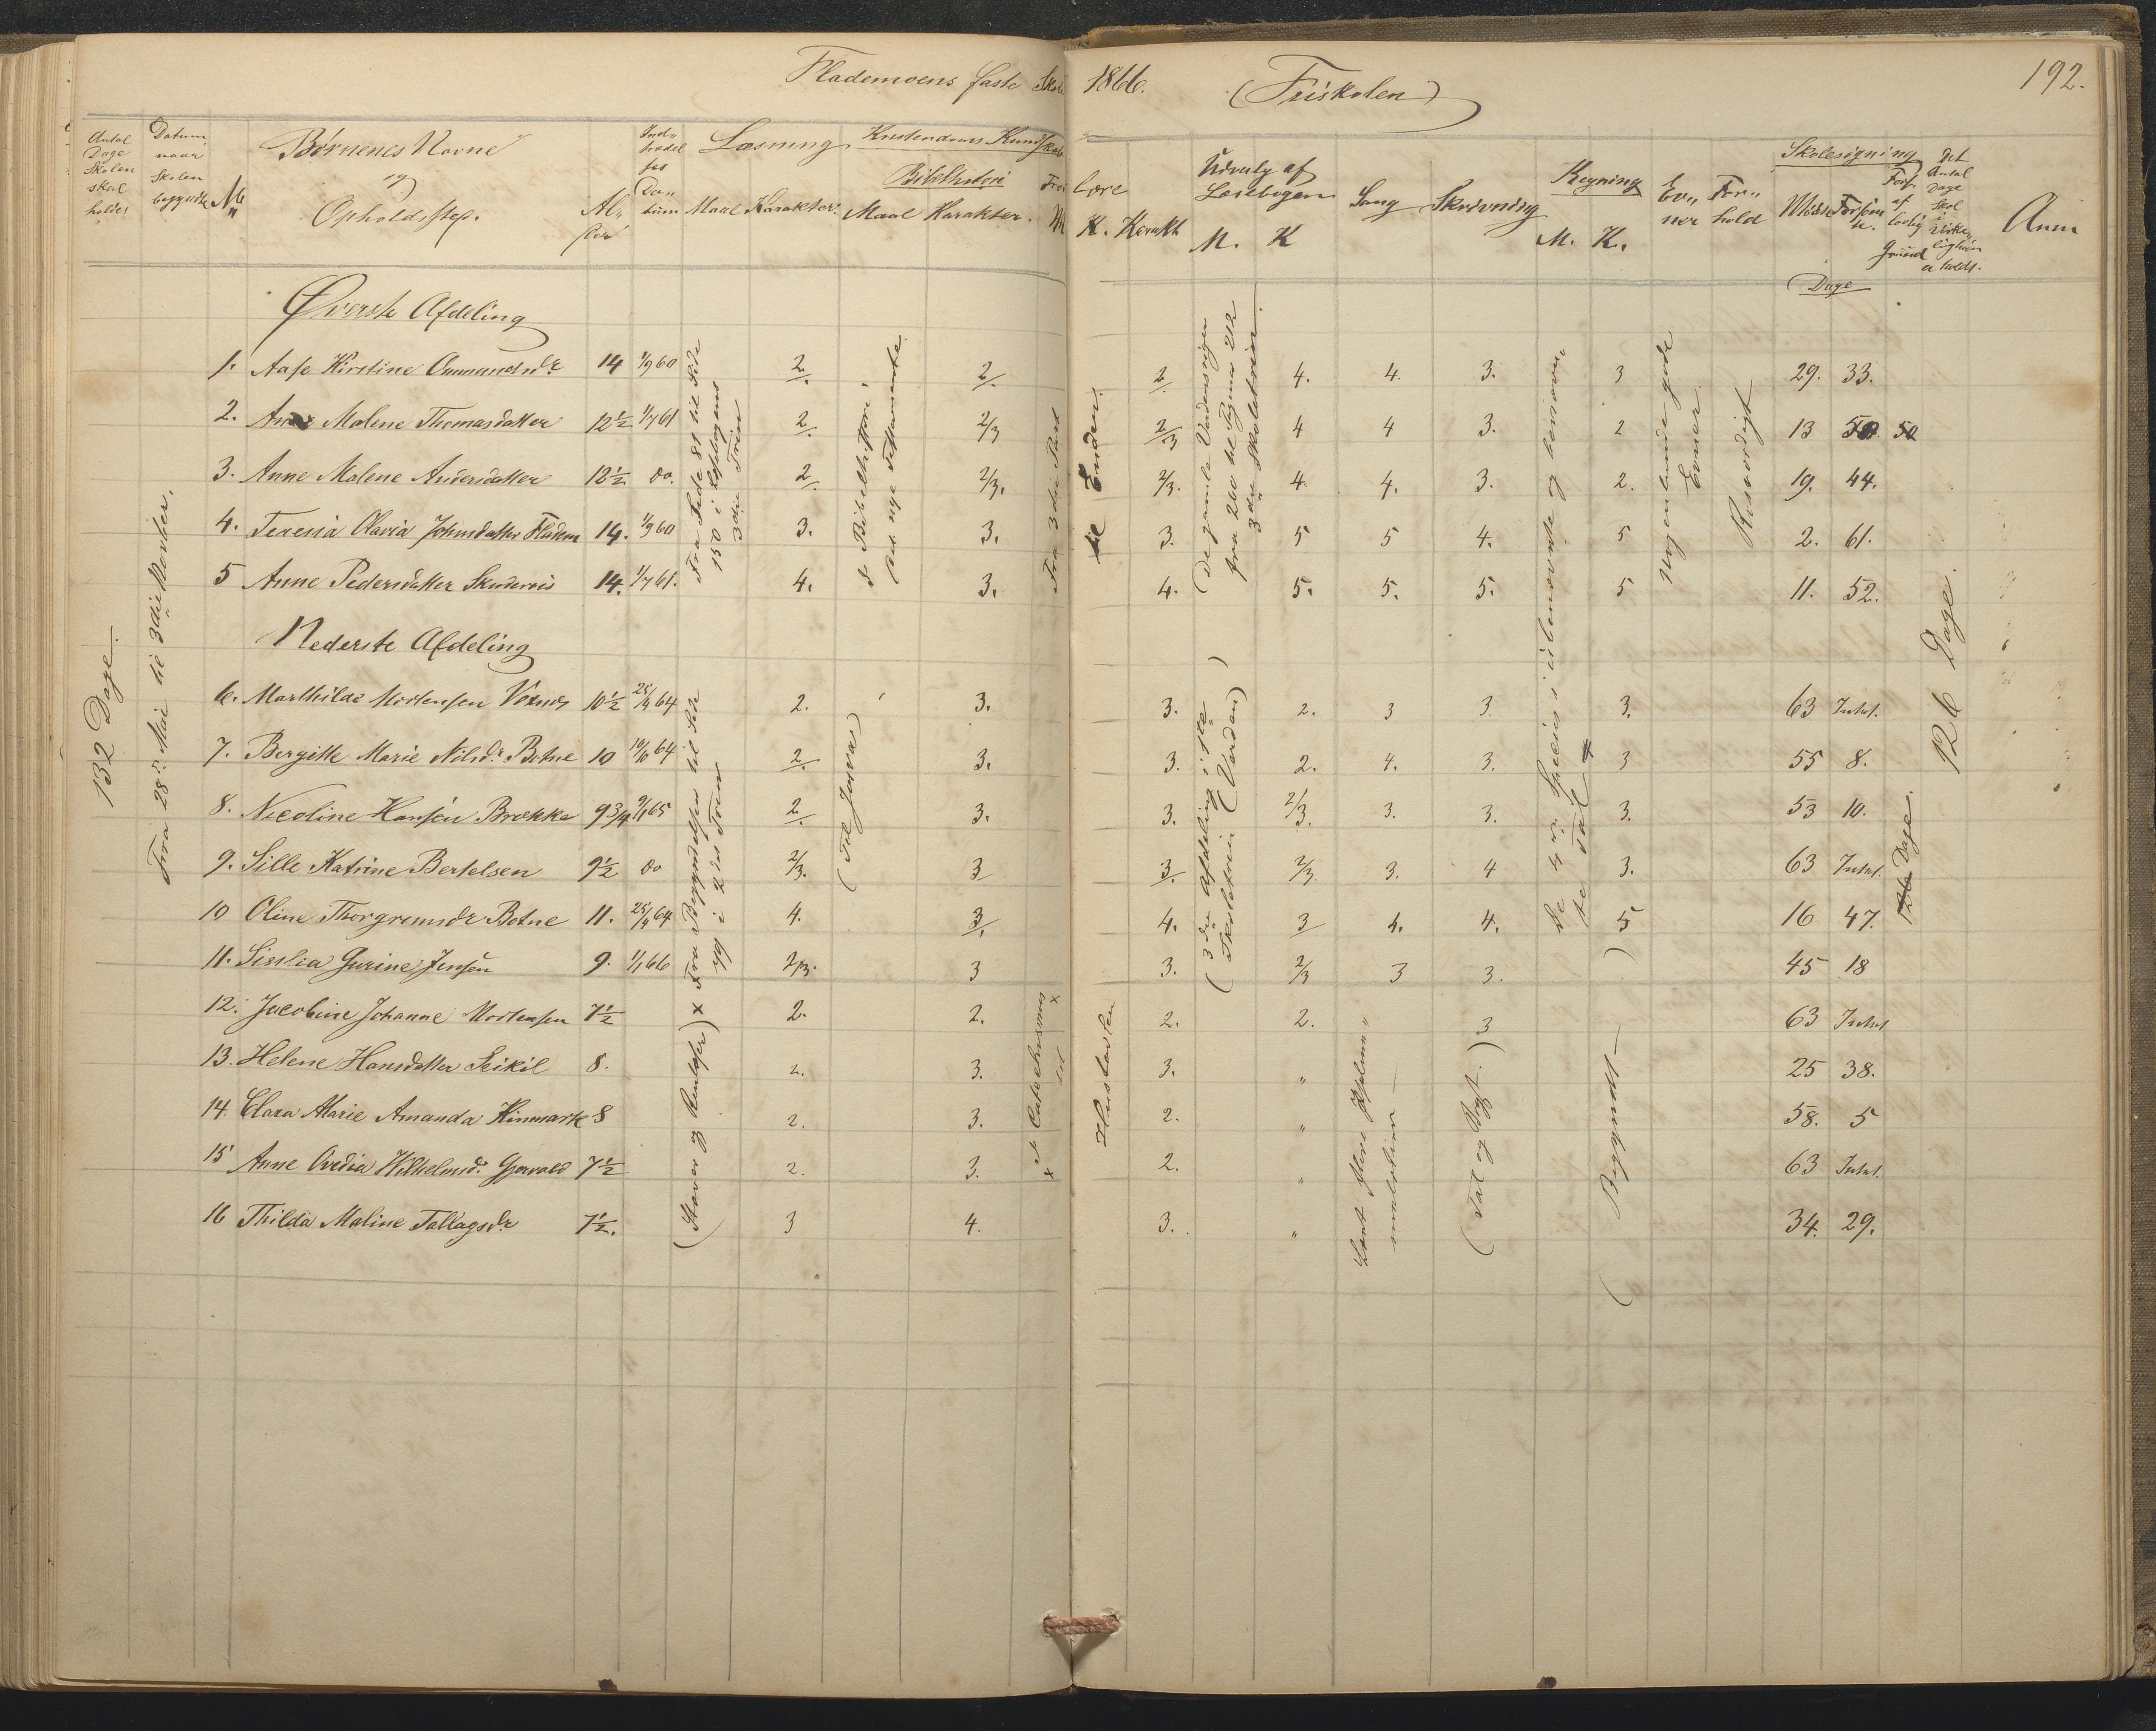 Flademoens faste Skole 1866. (Friskolen) 192.
Antal Dage Skolen skal holdes
Datum, naar Skolen begyndte
№
Børnenes Navne og Opholdssted.
Alder
Ind- trædel ses Datum
Læsning
Maal Karakter.
Kristendoms Kundskab
Bibelhistori
Maal Karakter.
Troes Lære
M. K. Karakt
Udvalg af Læsebogen
M. K
Sang
Skrivning
Regning
M. K.
Evner
Forhold
Skolesøgning
Mødte
Forsømte.
Fors. af lovlig Grund
Det Antal Dage Skol i Virkeligheden er holdt.
Anm
Dage
132 Dage.
Fra 28de Mai til 3die Novber.
Øverste Afdeling
1. Aase Kirstine Ommundsdr 14 1/9 60 2. 2. 2 4. 4. 3. 3 29. 33.
2. Anne Malene Thomasdatter 12½ 1/7 61 2. 2/3 2/3 4 4 3. 2 13 50. 50
3. Anne Malene Andersdatter 12½ do. 2 2/3. 2/3. 4 4. 3. 2. 19. 44.
4. Teresia Olavia Johnsdatter Fladem 14. 1/9 60 3. 3. 3. 5 5 4. 5 2. 61.
5 Anne Pedersdatter 14. 1/7 61. 4. 3. 4. 5. 5. 5. 5 11. 52.
Fra Side 81 til Side 150 i Læsebogens 3die Trin
I Bibelhistorie ved nye Testamente.
Fra 3die Part til Enden.
(De gamle Verdensriger fra 200 til Pagina 212 3die Skoletrin.
De 4 r. Species i ubenævnte og bensævn, te Tal
Nogenlunde gode Evner
Rosværdigt
126 Dage.
Nederste Afdeling
6. Marthilde Mortensen Voxnes 10½ 25/4 64 2. 3. 3. 2. 3 3. 3. 63 Intet.
7. Bergitte Marie Nilsdr Botne 10 10/10 64 2. 3. 3. 2. 4. 3. 3 55 8.
8. Nicoline Hansen Brække 9¾ 9/1 65 2. 3. 3. 2/3. 3. 3. 3. 53 10.
9. Sille Katrine Bertelsen 9½ do 2/3. 3 3. 2/3. 3. 4 3. 63 Intet.
10 Oline Thorgremsdr Botne 11. 25/4 64 4. 3. 4. 3 4. 4. 5 16 47.
11. Sisslea Gurine Jensen 9. 1/1 66 2/3. 3 3. 2/3 3 3. 45 18
12. Jacobine Johanne Mortensen 7½ 2. 2. 2. 2. 3 63 Intet
13. Helene Hansdatter Seikil 8. 2. 3. 3. " 25 38.
14. Clara Marie Amanda Hinmark 8 2. 3. 2. " 58. 5
15 Anne Ovedia Wilhelmsdr. Gjervold 7½ 2. 3. 2. " 63 Intet.
16 Thilda Maline Tallagsdr 7½. 3 4. 3. " 34. 29.
(Staver og Indlæser) x Fra Begyndelsen til Side i 2det Trin
(Til Josva)
x I Catechismus til x
Hustavlen
(3die Afdeling i 1ste Skoletrin (Verden)
Lært flere Psalme- melodier —
(Tal og Bogst.)
(Begyndt —)
Dage.